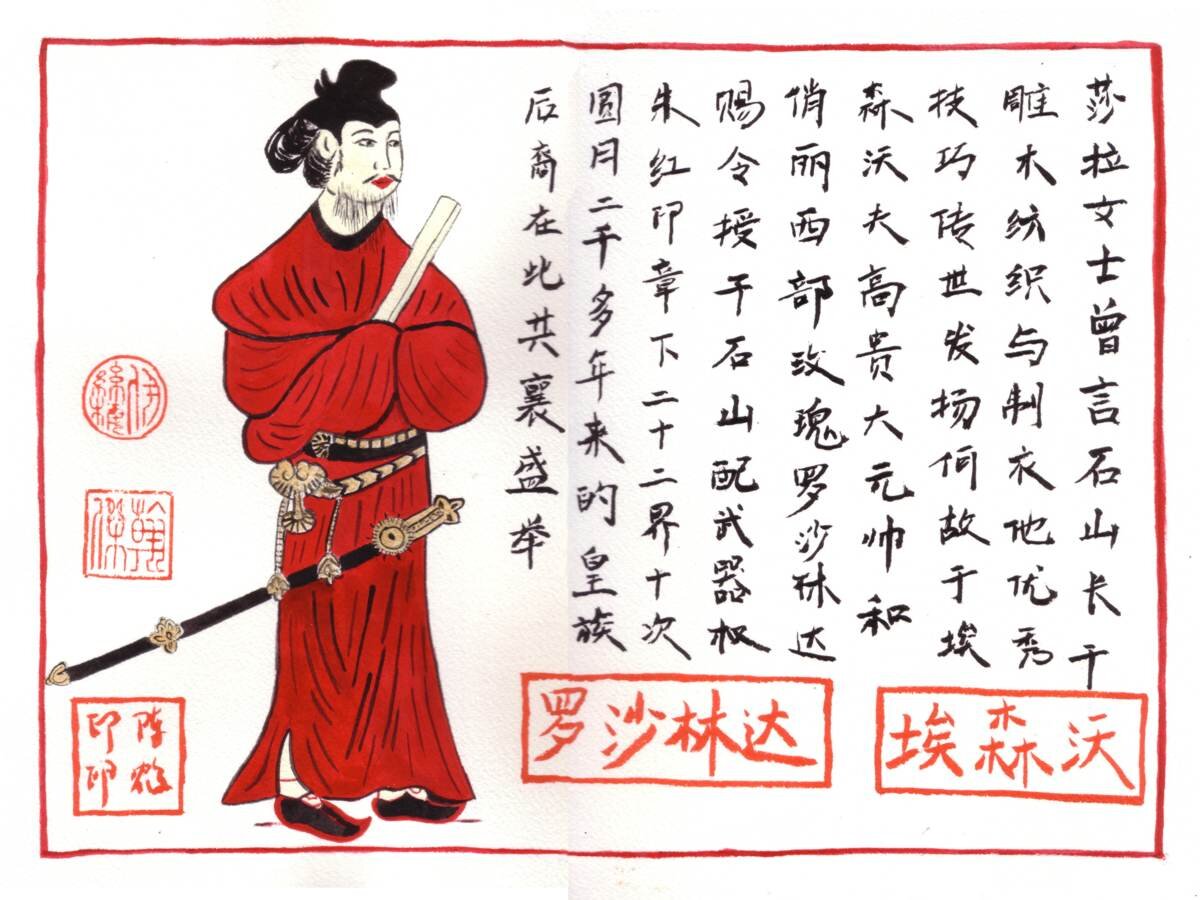 莎拉女士曾言石山长于
雕木纺织与制衣他优秀
技巧传世发扬何故于埃
森沃夫高贵大元帅和
俏丽西部玫瑰罗沙林达
赐令授于石山配武器权
朱红印章下二十二界十次
圆月二千多年来的皇族
后裔在此共襄盛举
埃森沃
罗沙林达